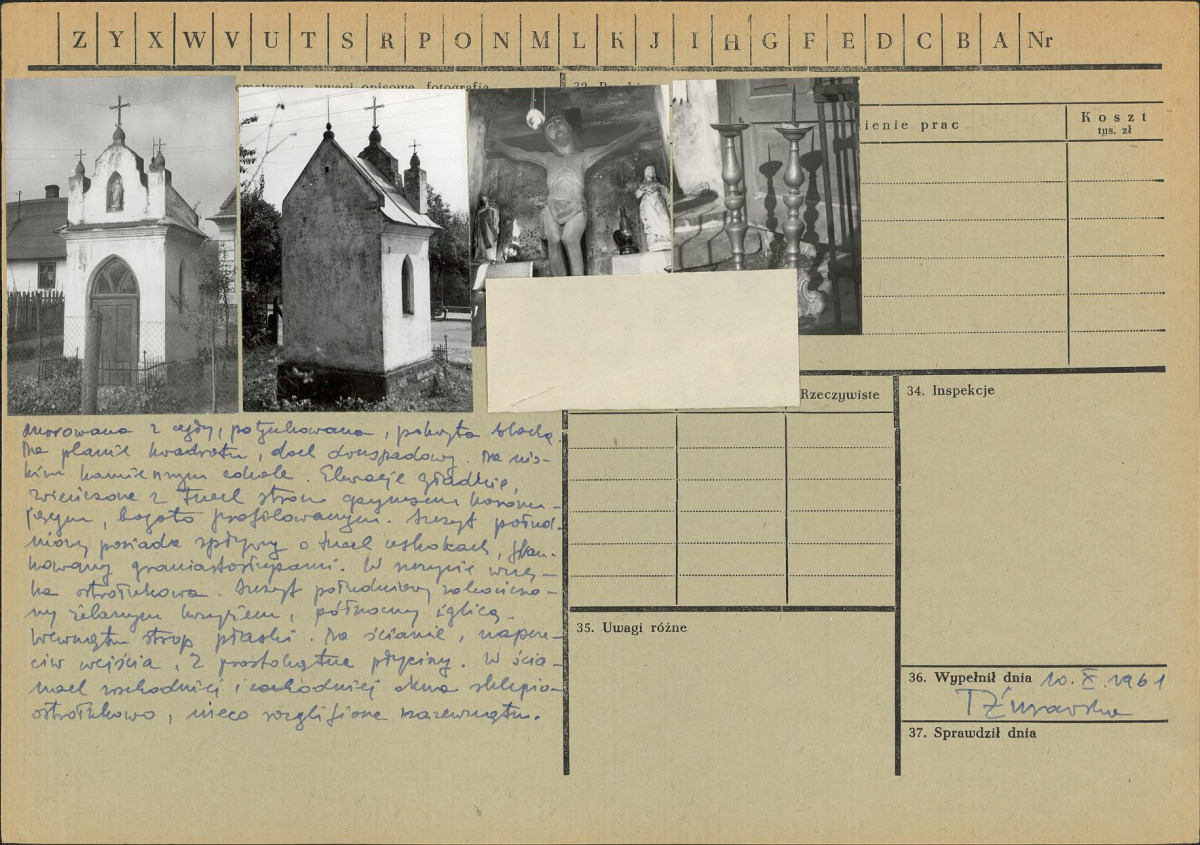 Z Y X W V U T S R P O N M L K J I H G F E D C B A Nr
uwagi opisowe, fotografia
ienie prac
Koszt
tys. zł
murowana z cegły, potynkowana, pokryta blachą.
Na planie kwadratu, dach dwuspadowy. Na nis-
kim kamiennym cokole. Elewacje gładkie,
zwieńczone z trzech stron gzymsem koronu-
jącym, bogato profilowanym. Szczyt połud-
niowy posiada spływy o trzech uskokach, flan-
kowany graniastosłupami. W szczycie wnę-
ka ostrołukowa. Szczyt południowy zakończo-
ny żelaznym krzyżem, północny iglicą.
Wewnątrz strop płaski. Na ścianie, naprze-
ciw wejścia, 2 prostokątne płyciny. W ścia-
nach wschodniej i zachodniej okna sklepio-
ostrołukowo, nieco rozglifione nazewnątrz.
Rzeczywiste
34. Inspekcje
35. Uwagi różne
36. Wypełnił dnia 10.X.1961
37. Sprawdził dnia